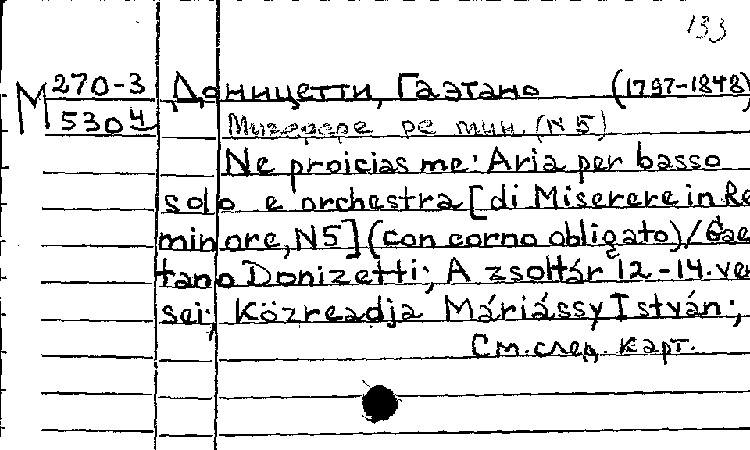 133
М 270-3 Доницетти, Гаэтано (1797-1848)
5304 Мизерере ре мин. (N 5)
Ne proicias me: Aria per basso
solo e orchestra [di Miserere in Re
minore, N5] (con corno obligato)/Gae
tano Donizetti; A zsoltár 12-14. ver
sei; Közreadja Máriássy István;
См. след. карт.